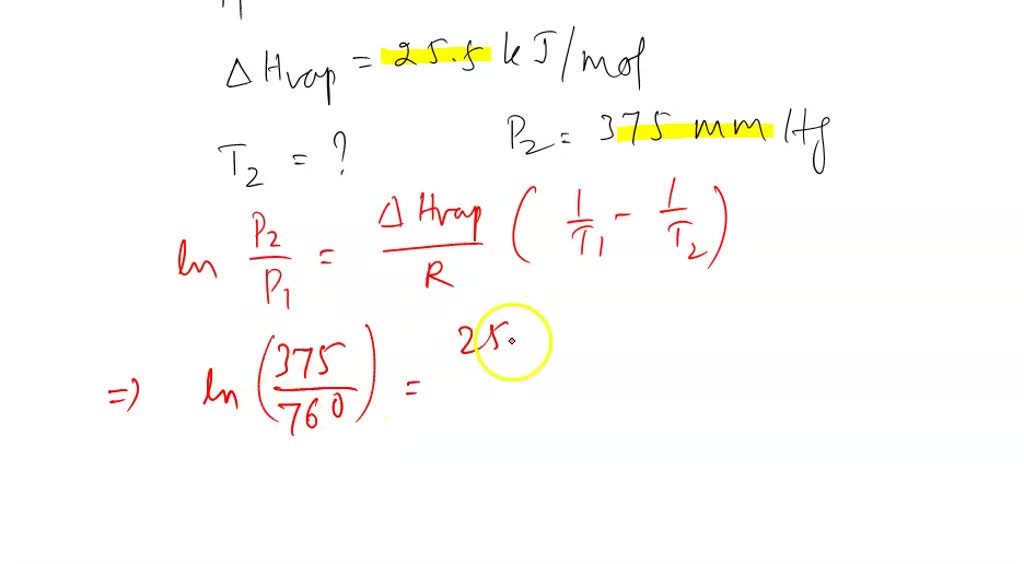 ΔHvap = 25.5 kJ/mol
T2 = ? P2 = 375 mm Hg
ln P2/P1 = ΔHvap/R (1/T1 - 1/T2)
=> ln (375/760) = 25.